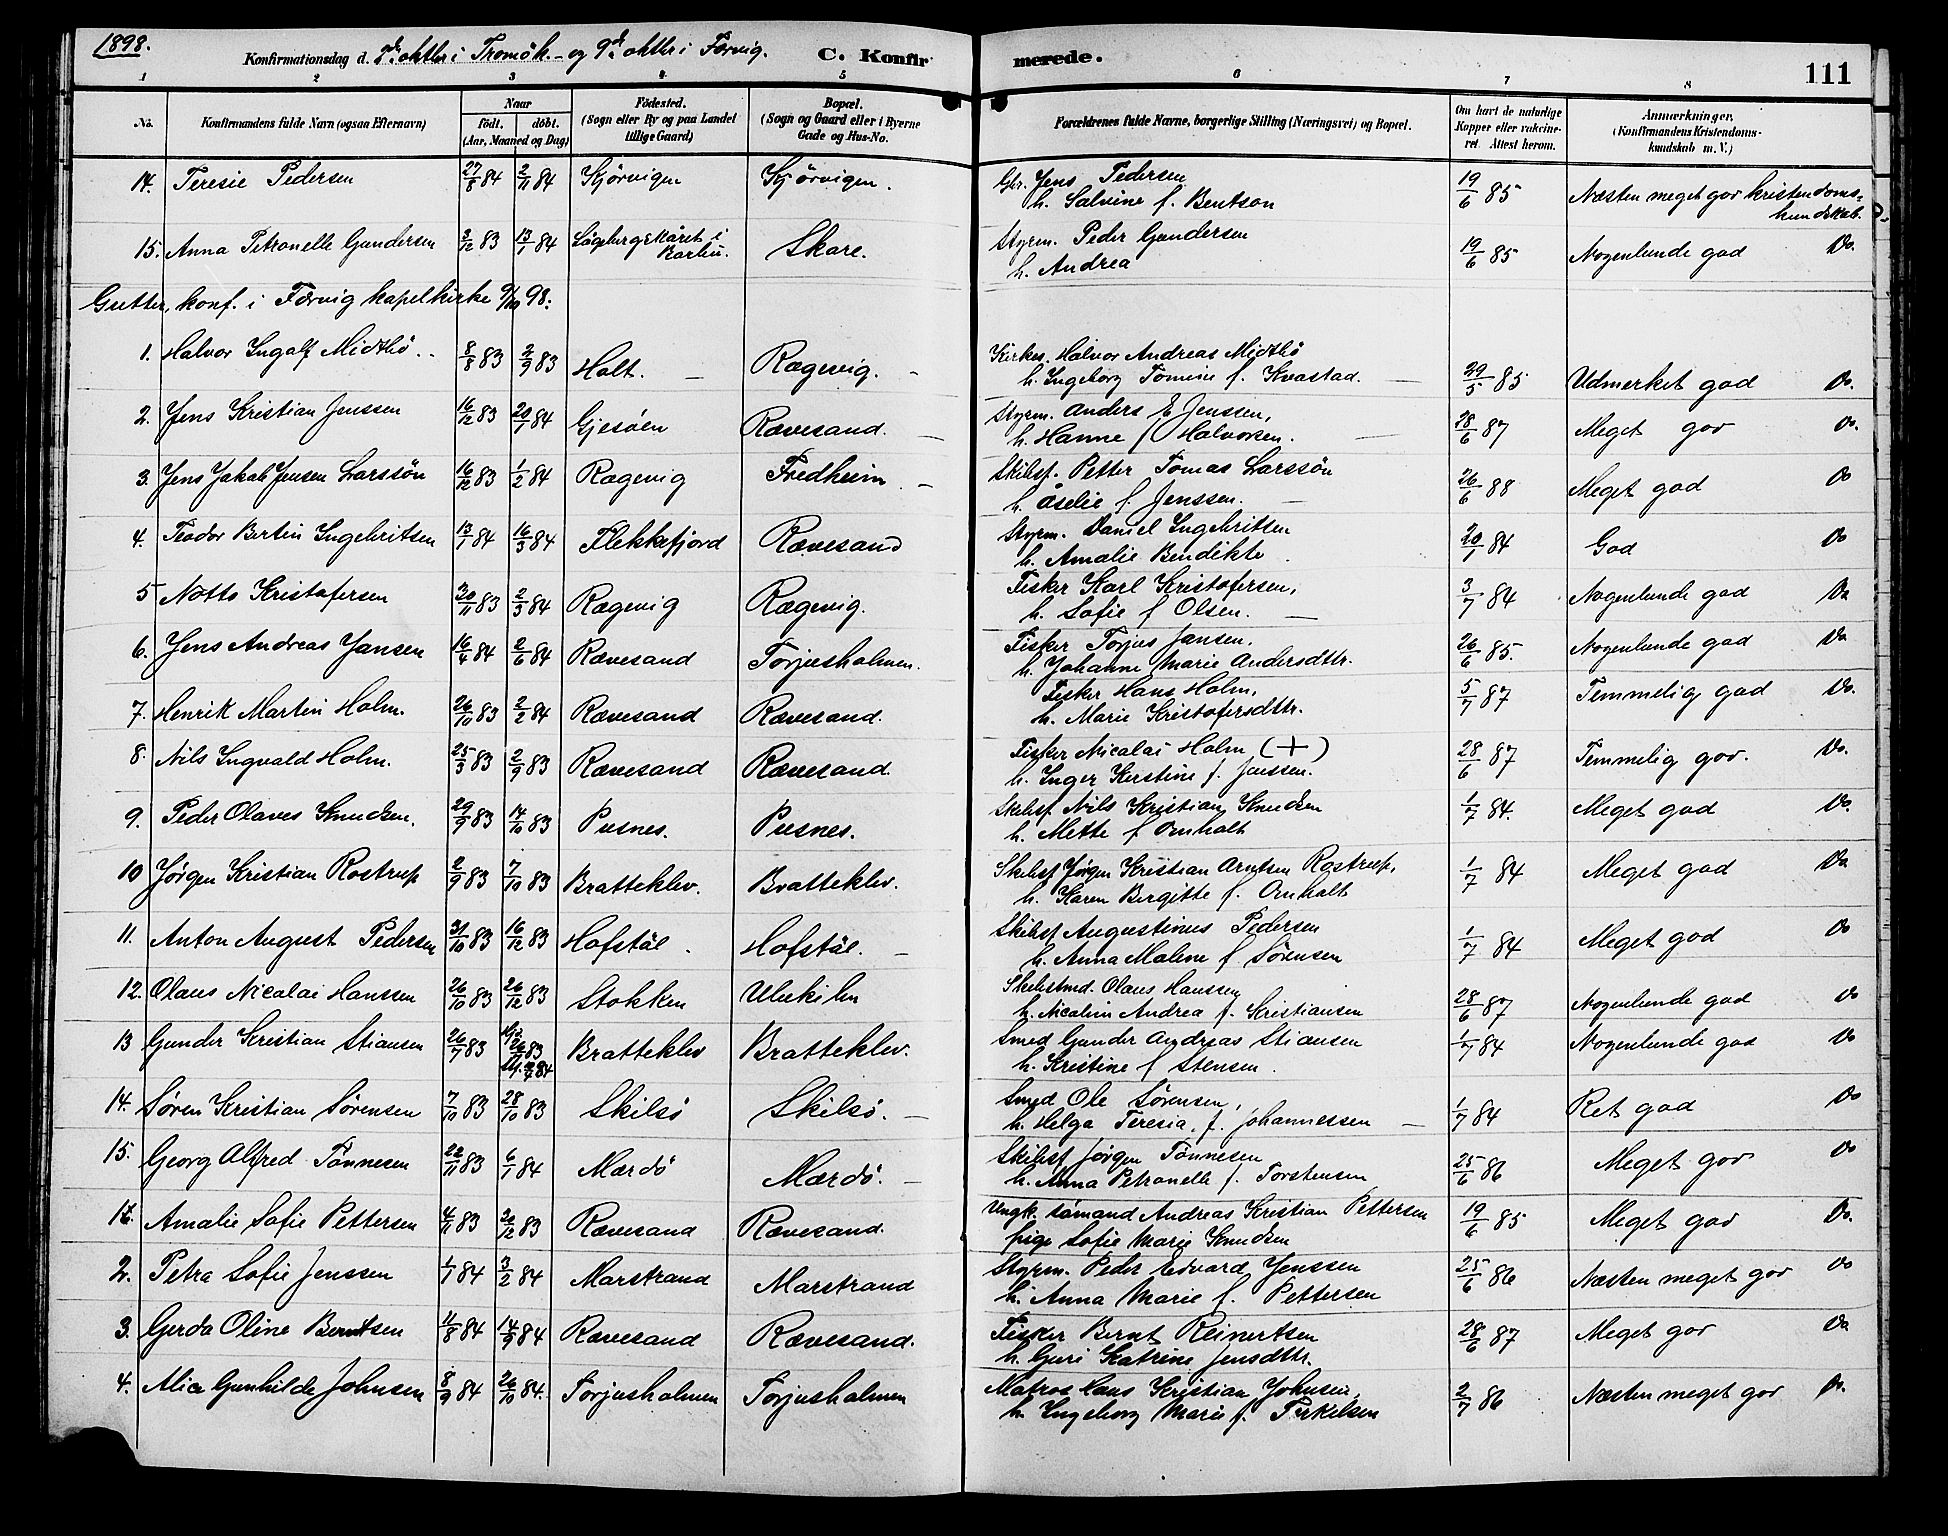 1898.
Konfirmationsdag d. 2den oktbr i Tromø k. og 9de oktbr i Færvig. C. Konfirmerede. 111
1 2 3 4 5 6 7 8
No. Konfirmandens fulde Navn (ogsaa Efternavn) Naar födt. döbt. (Aar, Maaned og Dag) Födested. (Sogn eller By og paa Landet tillige Gaard) Bopæl. (Sogn og Gaard eller i Byerne Gade og Hus-No. Forældrenes fulde Navne, borgerlige Stilling (Næringsvei) og Bopæl. Om havt de naturlige Kopper eller vaccineret. Attest herom. Anmærkninger. (Konfirmandens Kristendomskundskab m. V.)
14. Teresie Pedersen 27/8 84 2/11 84 Kjørvigen Kjørvigen. Gbr. Jens Pedersen 19/6 85 Næsten meget god kristendoms-
h. Salvine f. Bentson kundskab.
15. Anna Petronelle Gundersen 3/12 83 13/1 84 Skare. Styrm. Peder Gundersen 19/6 85 Nogenlunde god Do.
h. Andrea
Gutter, konf. i Færvig kapelkirke 9/10 98:
1. Halvor Ingolf Midtbø 8/8 83 2/9 83 Holt. Rægevig. Kirkes. Halvor Andreas Midtbø
h. Ingeborg Tomine f. Kvastad. 29/5 85 Udmerket god Do.
2. Jens Kristian Jenssen 16/12 83 20/1 84 Gjesøen Rævesand. Styrm. Anders E Jenssen,
h. Hanne f Halvorsen. 28/6 87 Meget god Do.
3. Jens Jakob Jensen Larssøn 16/12 83 1/2 84 Rægevig Fredheim Skibsf. Petter Tomas Larssøn
h. Åselie f. Jenssen. 26/6 88 Meget god Do
4. Teodor Bertin Ingebritsen 13/1 84 16/3 84 Flekkefjord Rævesand Styrm. Daniel Ingebritsen
h. Amalie Bendikte 20/7 84 God Do
5 Notto Kristofersen 30/11 83 2/3 84 Rægevig Rægevig. Fisker Karl Kristofersen,
h. Sofie f Olsen. 3/7 84 Nogenlunde god Do
6. Jens Andreas Jansen 16/4 84 2/6 84 Rævesand Torjusholmen. Fisker Torjus Jansen.
h. Johanne Marie Andersdtr. 26/6 85. Nogenlunde god Do
7. Henrik Martin Holm. 26/10 83 2/2 84 Rævesand Rævesand. Fisker Hans Holm,
h. Marie Kristofersdttr. 5/7 87 Temmelig god Do.
8. Nils Ingvald Holm. 25/3 83 2/9 83 Rævesand Rævesand. Fisker Nicolai Holm (+)
h. Inger Kerstine f. Jenssen. 28/6 87 Temmelig god. Do.
9. Peder Olaves Knudsen. 29/9 83 14/10 83 Pusnes. Pusnes. Skibsf Nils Kristian Knudsen
h. Mette f Omholt 1/7 84. Meget god Do.
10 Jørgen Kristian Rostrup 2/9 83 7/10 83 Bratteklev. Bratteklev. Skibsf Jørgen Kristian Arntsen Rostrup,
h. Karen Birgitte f. Omholt 1/7 84 Meget god Do
11. Anton August Pedersen 31/10 83 16/12 83 Hofstøl. Hofstøl. Skibsf Augustinus Pedersen
h. Anna Malene f Sørensen 1/7 84 Meget god Do
12. Olaus Nicolai Hanssen 26/10 83 26/12 83 Stokken Ulvekiln Skibstmd. Olaus Hanssen
h. Nicoline Andrea f. Kristiansen 28/6 87 Nogenlunde god Do
13 Gunder Kristian Stiansen 26/7 83 Bratteklev Bratteklev. Smed Gunder Andreas Stiansen
h. Kristine f Stensen. 1/7 84 Nogenlunde god Do
14. Søren Kristian Sørensen 7/10 83 28/10 83 Skilsø Skilsø. Smed Ole Sørensen,
h. Helga Teresia. f. Johannessen 1/7 84 Ret god Do
15. Georg Alfred Tønnesen 22/11 83 6/1 84 Mærdø Mærdø. Skibsf Jørgen Tønnesen
h. Anna Petronelle f. Torstensen 25/6 86 Meget god Do
1. Amalie Sofie Pettersen 4/11 83 30/12 83 Rævesand Rævesand. Ungk. sømand Andreas Kristian Pettersen
pige Sofie Marie Knudsen 19/6 85 Meget god Do.
2. Petra Sofie Jenssen 1/1 84 3/2 84 Marstrand Marstrand Styrm. Peder Edvard Jenssen
h. Anna Marie f. Pettersen 25/6 86 Næsten meget god Do
3. Gerda Oline Berntsen 11/8 84 14/9 84 Rævesand Rævesand. Fisker Bernt Reinertsen
h. Guri Katrine Jensdttr. 28/6 87 Meget god Do
4. Alice Gunhilde Johnsen 8/9 84 26/10 84. Torjusholmen Torjusholmen Matros Hans Kristian Johnsen,
h. Ingeborg Marie f. Terkelsen 2/7 86 Næsten meget god Do.